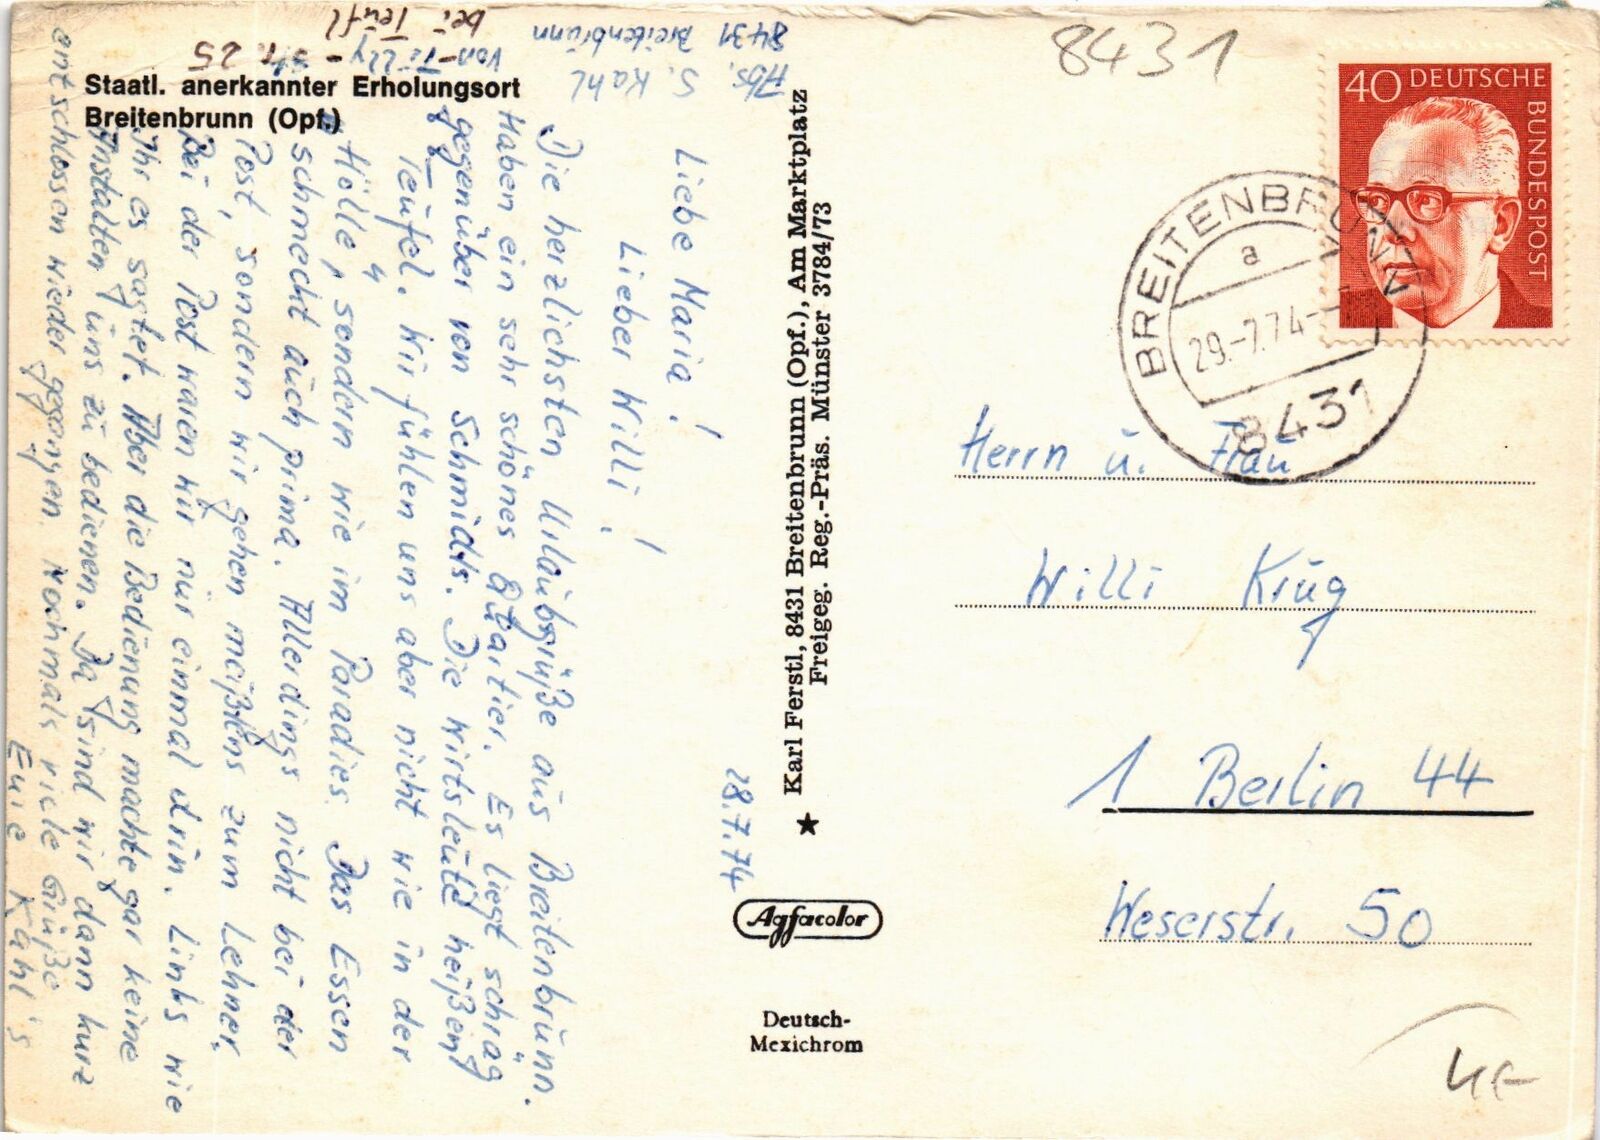 Staatl. anerkannter Erholungsort
Breitenbrunn (Opf.)
Abs. S. Kahl
8431 Breitenbrunn
von-Tilly-Str. 25
bei Teufl
28.7.74
Liebe Maria!
Lieber Willi!
Die herzlichsten Urlaubsgrüße aus Breitenbrunn.
Haben ein sehr schönes Quartier. Es liegt schräg
gegenüber von Schmidts. Die Wirtsleute heißen
Teufel. Wir fühlen uns aber nicht wie in der
"Hölle", sondern wie im Paradies. Das Essen
schmeckt auch prima. Allerdings nicht bei der
Post, sondern wir gehen meißtens zum Lehner.
Bei der Post waren wir nur einmal drin. Links wie
Ihr es sagtet. Aber die Bedienung machte gar keine
Anstalten uns zu bedienen. Da sind wir dann kurz
entschlossen wieder gegangen. Nochmals viele Grüße
Eure Kahl's
Karl Ferstl, 8431 Breitenbrunn (Opf.), Am Marktplatz
Freigeg. Reg.-Präs. Münster 3784/73
Agfacolor
Deutsch-
Mexichrom
8431
40 DEUTSCHE
BUNDESPOST
BREITENBRUNN
a
29.-7.74-
8431
Herrn u. Frau
Willi Krug
1 Berlin 44
Weserstr. 50